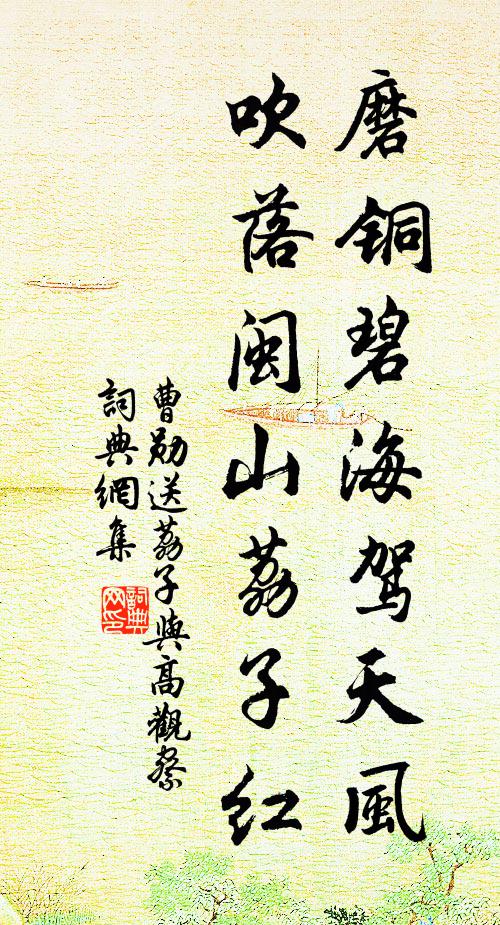 磨铜碧海驾天風
吹落闽山荔子红
曹勛送荔子與高觀察
詞典網集
詞典网印